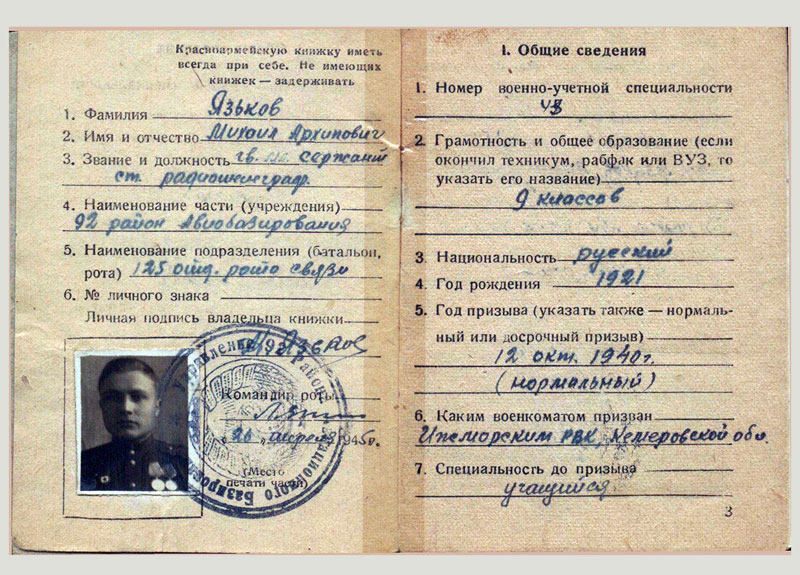 Красноармейскую книжку иметь
всегда при себе. Не имеющих
книжек — задерживать
1. Фамилия Язьков
2. Имя и отчество Михаил Архипович
3. Звание и должность гв. сержант
ст. радиотелеграф.
4. Наименование части (учреждения)
92 район Авиабазирования
5. Наименование подразделения (батальон,
рота) 125 отд. рота связи
6. № личного знака
Личная подпись владельца книжки
Командир роты
"26" апреля 1945г.
(Место
печати части)
Управление 92 района Авиационного Базирования
I. Общие сведения
1. Номер военно-учетной специальности
2. Грамотность и общее образование (если
окончил техникум, рабфак или ВУЗ, то
указать его название)
9 классов
3. Национальность русский
4. Год рождения 1921
5. Год призыва (указать также — нормаль-
ный или досрочный призыв)
12 окт. 1940г.
(нормальный)
6. Каким военкоматом призван
Ижморским РВК, Кемеровской обл.
7. Специальность до призыва
учащийся.
3